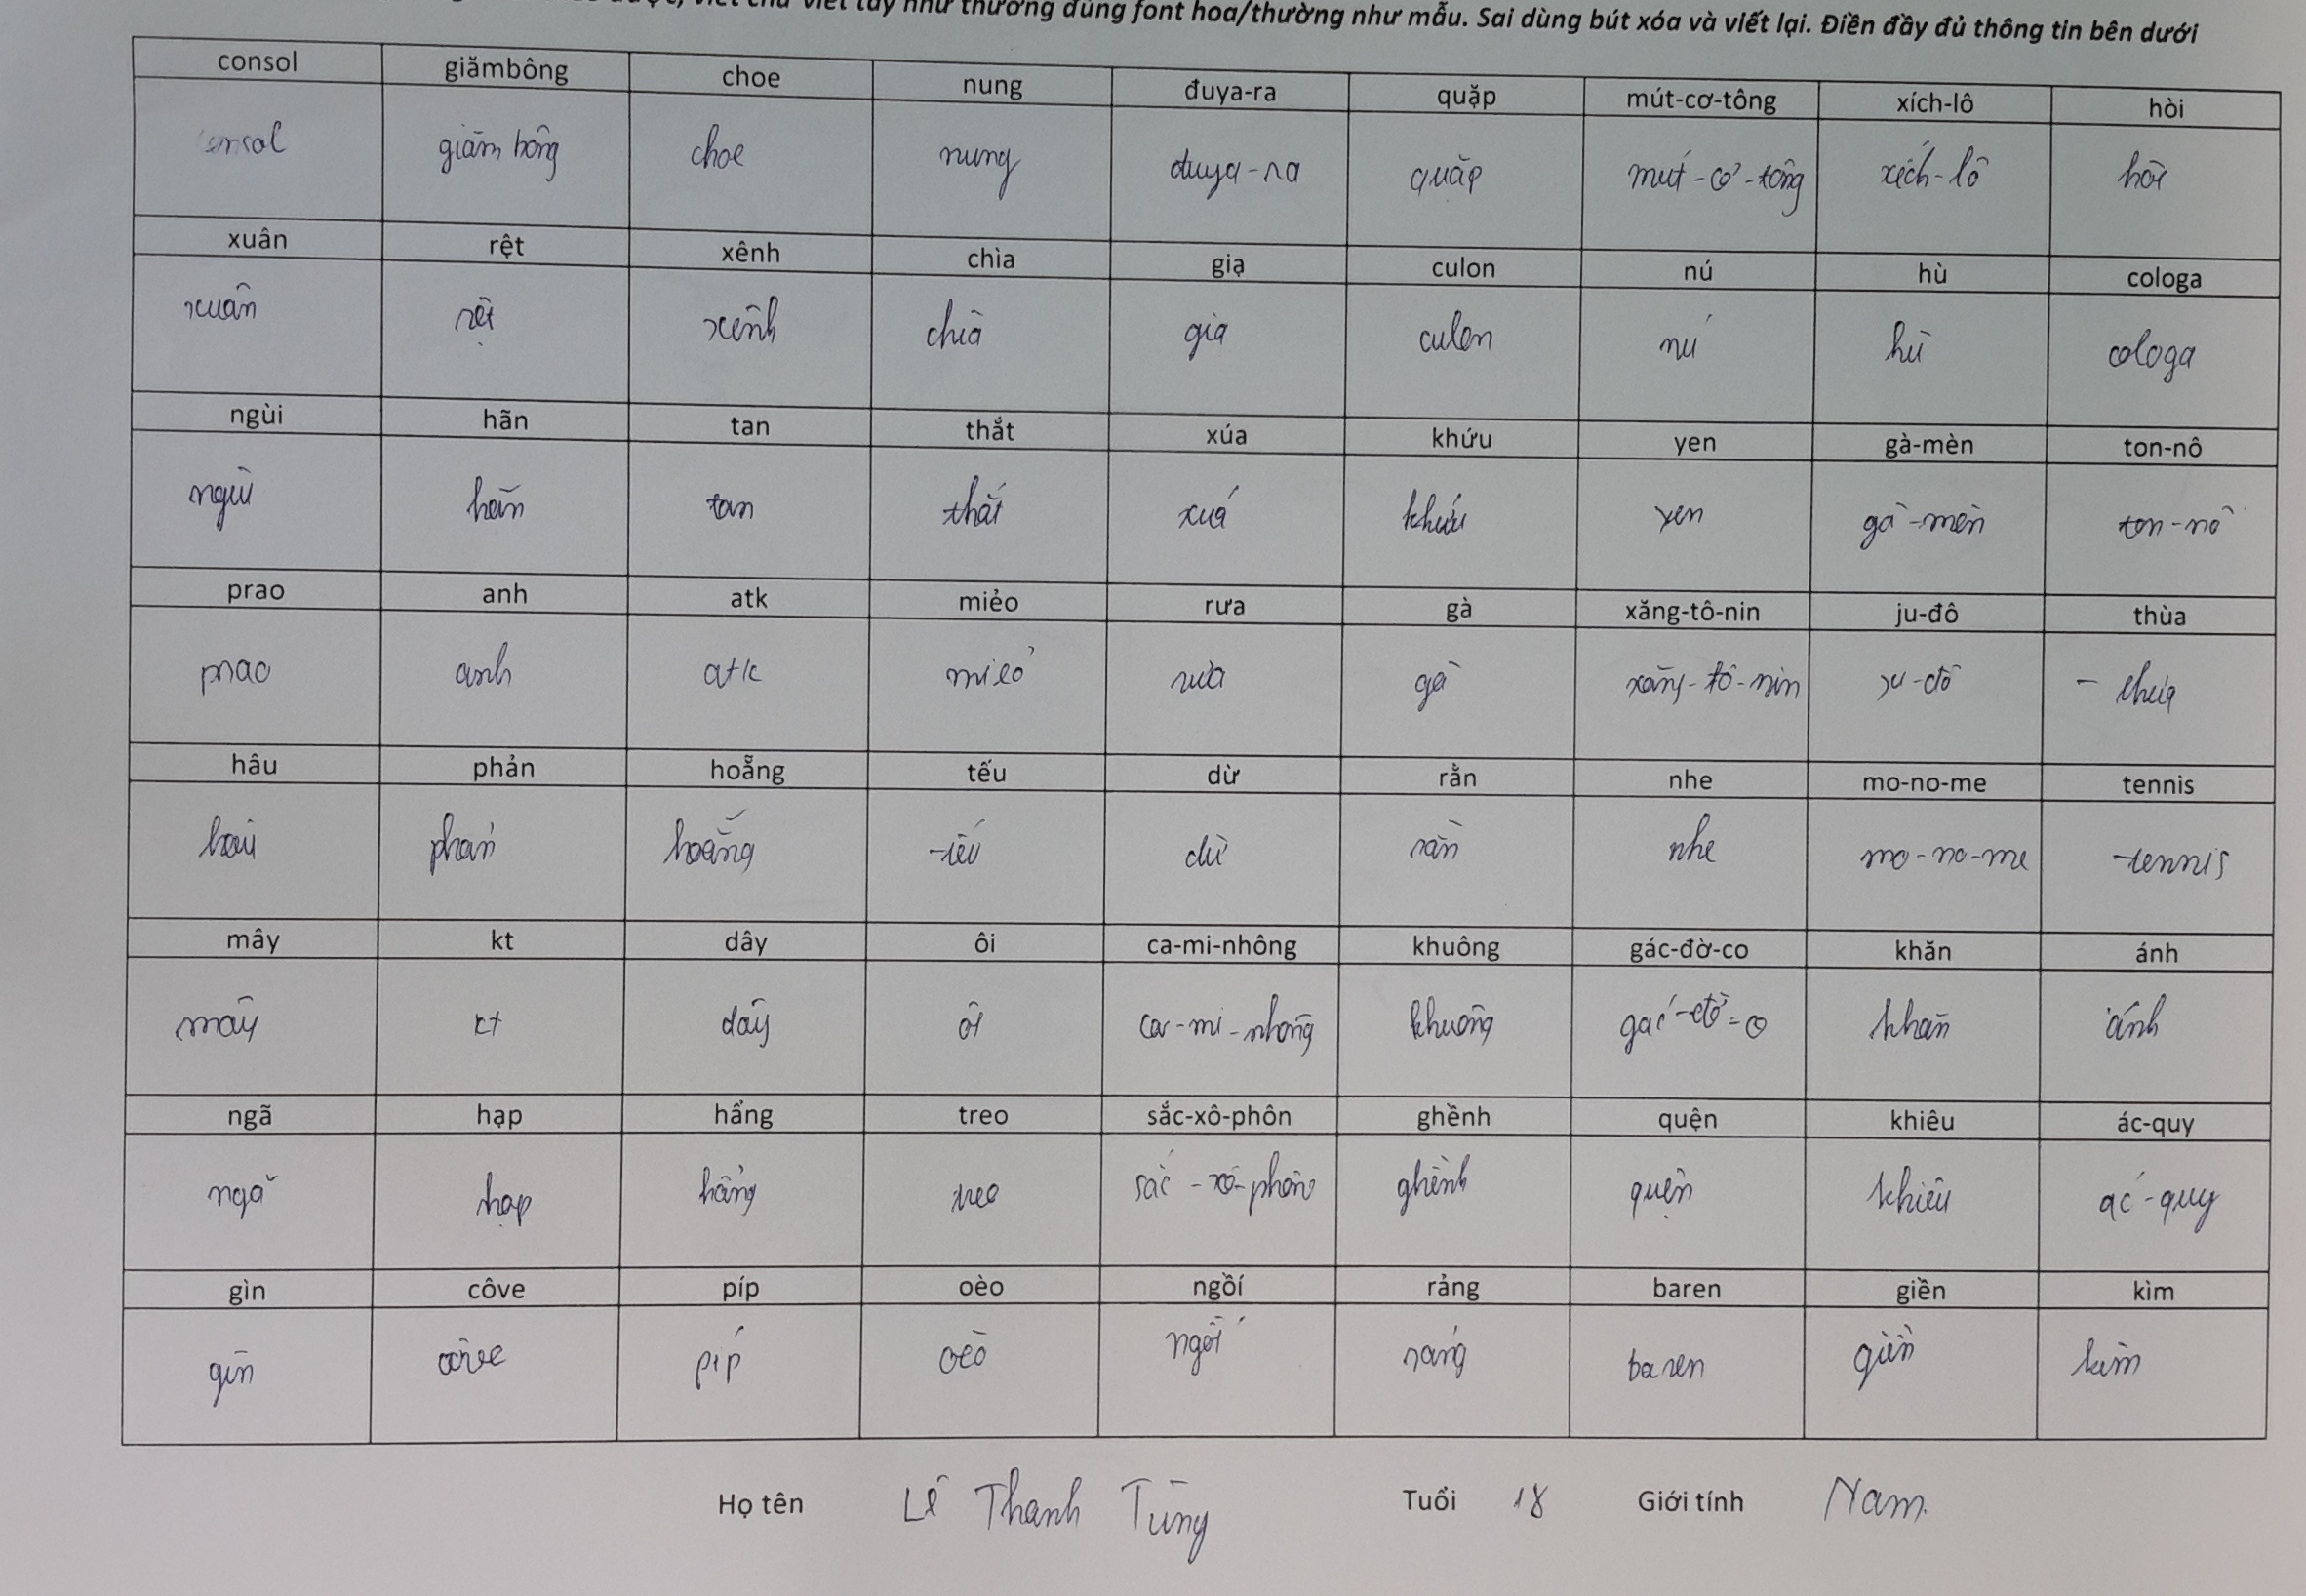 viết chữ viết tay như thường dùng font hoa/thường như mẫu. Sai dùng bút xóa và viết lại. Điền đầy đủ thông tin bên dưới
consol giămbông choe nung đuya-ra quặp mút-cơ-tông xích-lô hòi
consol giăm bông choe nung đuya-ra quặp mút-cơ-tông xích-lô hòi
xuân rệt xênh chìa giạ culon nú hù cologa
xuân rệt xênh chìa gia culon nú hù cologa
ngùi hãn tan thắt xúa khứu yen gà-mèn ton-nô
ngùi hãn tan thắt xúa khứu yen gà-mèn ton-nô
prao anh atk miẻo rưa gà xăng-tô-nin ju-đô thùa
prao anh atk miẻo rưa gà xăng-tô-nin ju-đô thùa
hâu phản hoẵng tếu dừ rằn nhe mo-no-me tennis
hâu phản hoẵng tếu dừ rằn nhe mo-no-me tennis
mây kt dây ôi ca-mi-nhông khuông gác-đờ-co khăn ánh
mây kt dây ôi ca-mi-nhông khuông gác-đờ-co khăn ánh
ngã hạp hẩng treo sắc-xô-phôn ghềnh quện khiêu ác-quy
ngã hạp hẩng treo sắc-xô-phôn ghềnh quện khiêu ác-quy
gìn côve píp oèo ngồí rảng baren giền kìm
gìn côve píp oèo ngồí rảng baren giền kìm
Họ tên Lê Thanh Tùng Tuổi 18 Giới tính Nam.